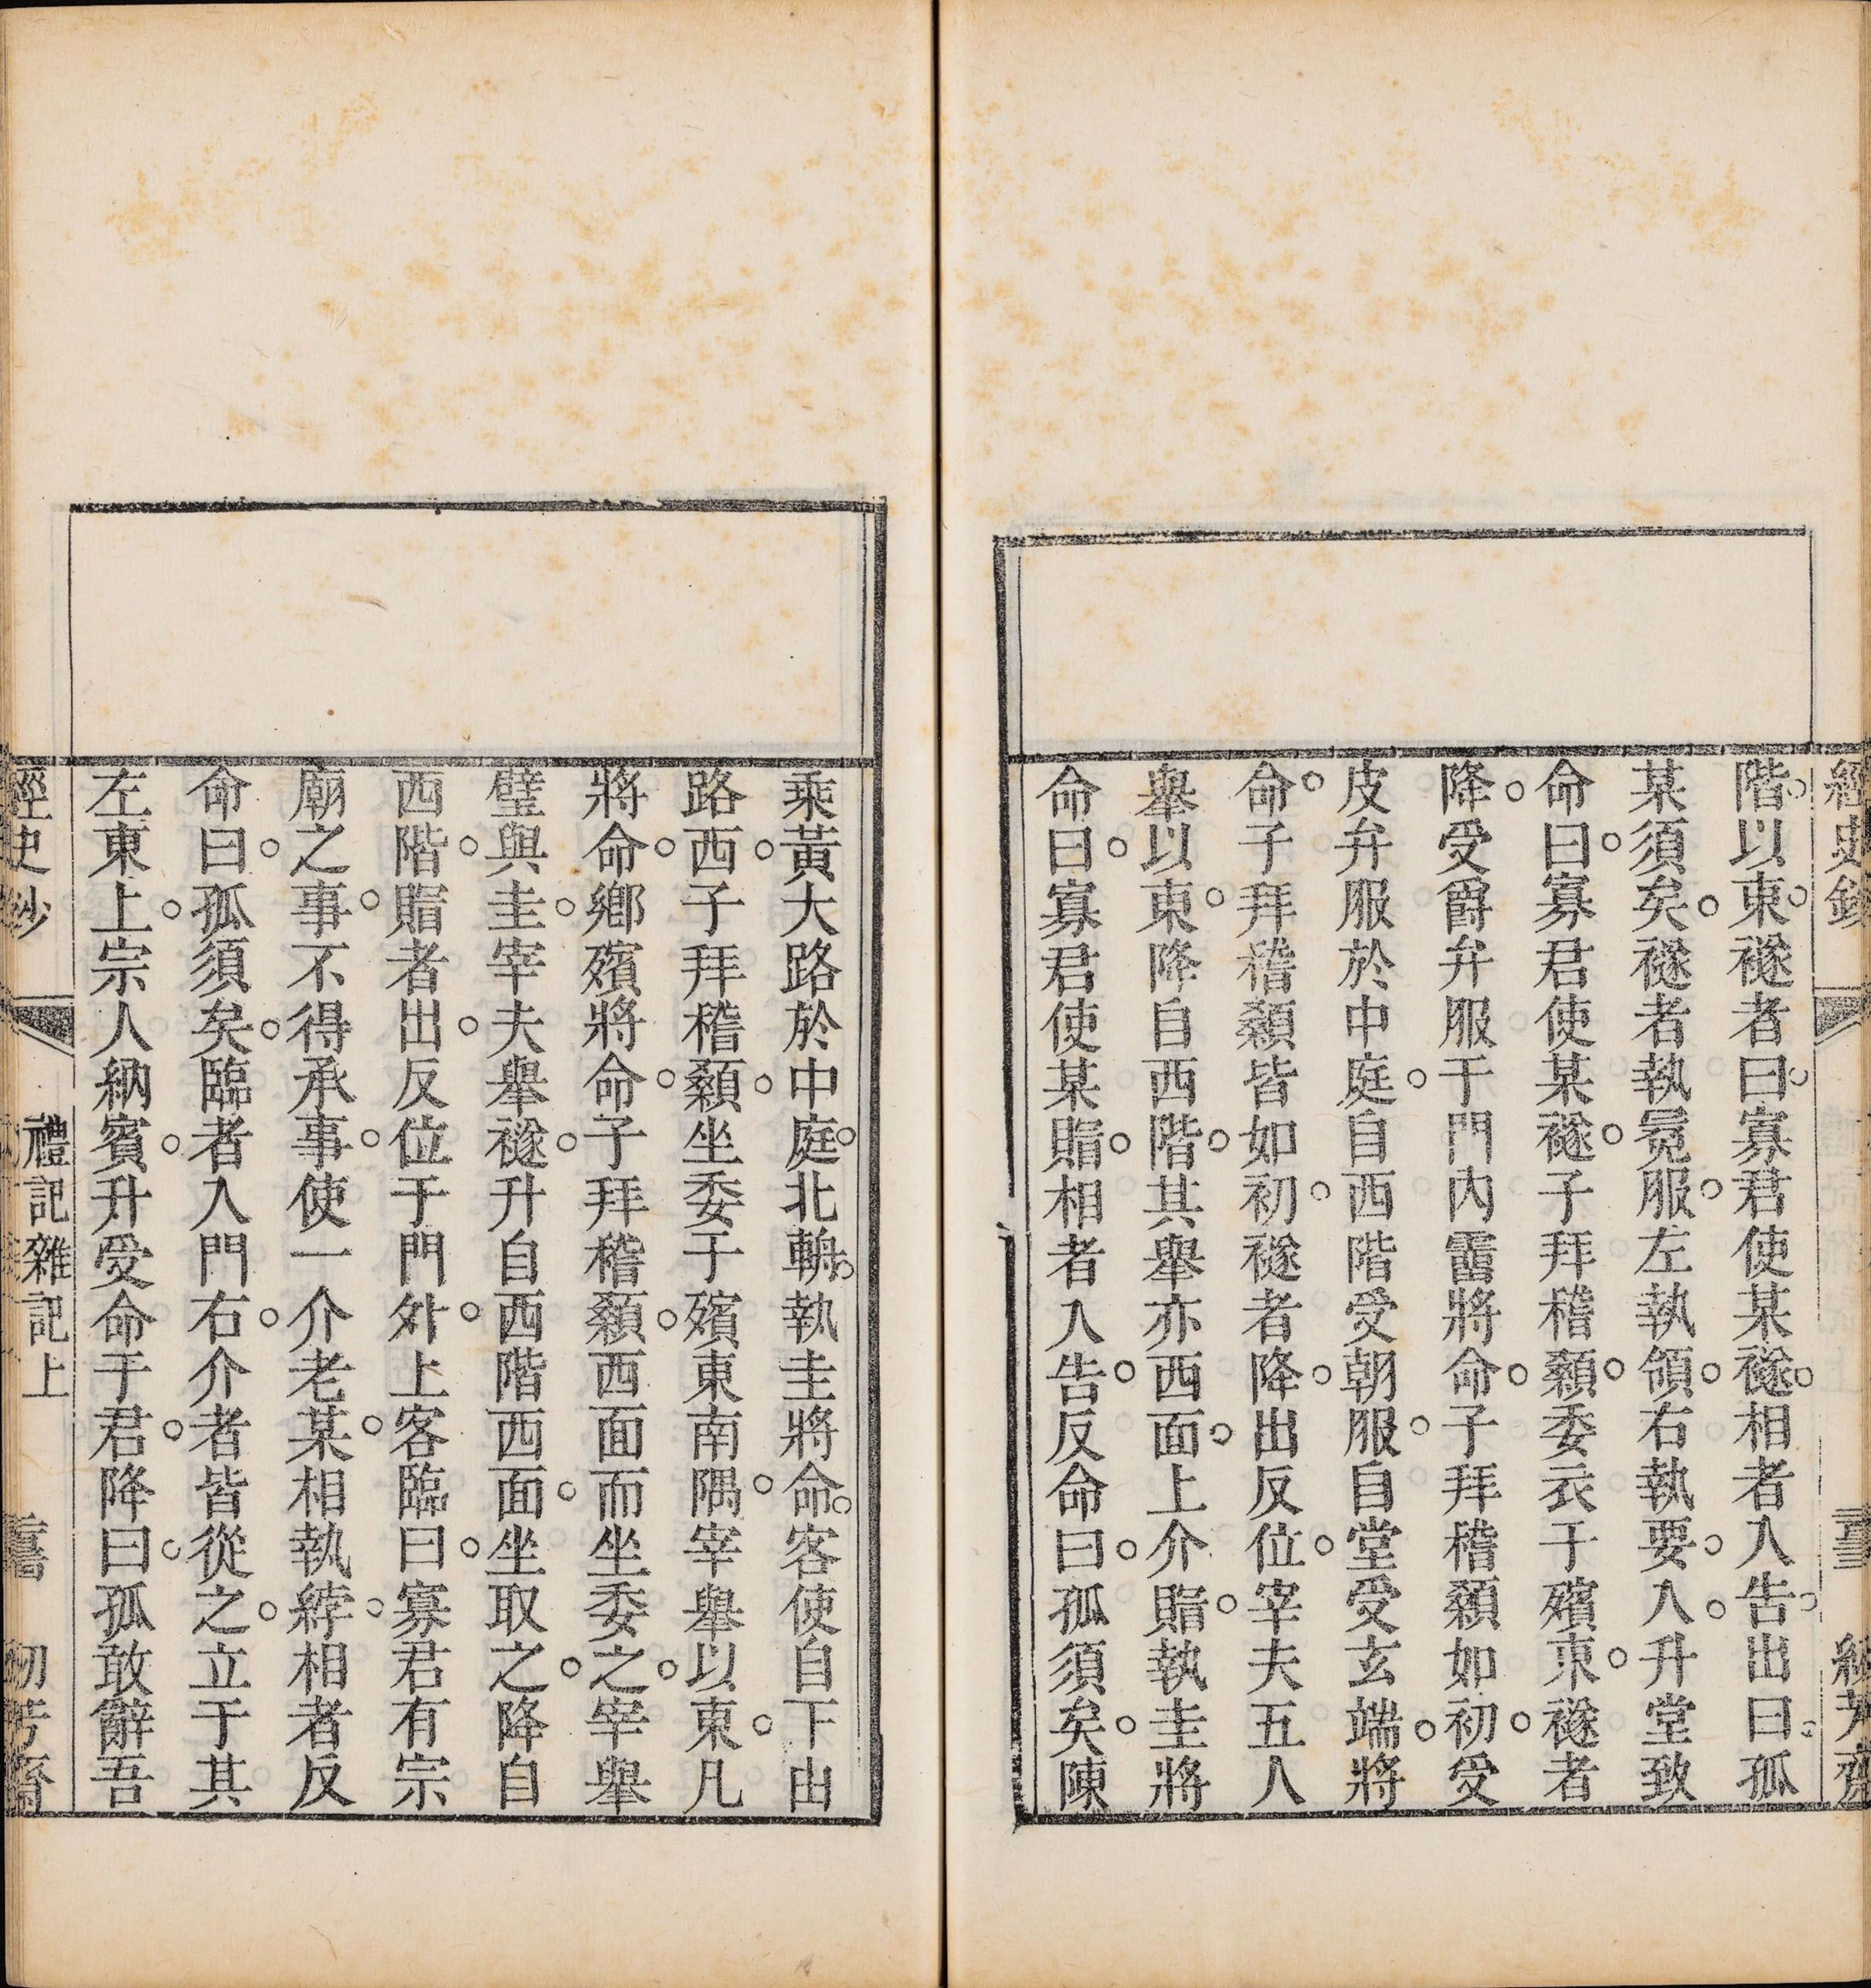 階。以東。襚者曰。寡君使某襚。相者入告。出曰。孤
某須矣。襚者執冕服。左執領。右執要。入。升堂致
命曰。寡君使某襚。子拜稽顙。委衣于殯東。襚者
降。受爵弁服于門內霤將命。子拜稽顙如初。受
皮弁服於中庭。自西階受朝服。自堂受玄端。將
命。子拜稽顙皆如初。襚者降。出反位。宰夫五人
舉以東。降自西階。其舉亦西面。上介賵。執圭將
命曰。寡君使某賵。相者入告。反命曰。孤須矣。陳
乘黃大路於中庭。北輈。執圭將命。客使自下由
路西。子拜稽顙。坐委于殯東南隅。宰舉以東。凡
將命。鄉殯將命。子拜稽顙。西面而坐委之。宰舉
璧與圭。宰夫舉襚。升自西階西面。坐取之。降自
西階。賵者出。反位于門外。上客臨曰。寡君有宗
廟之事。不得承事。使一介老某。相執綍。相者反
命曰。孤須矣。臨者入門右。介者皆從之。立于其
左東上。宗人納賓。升受命于君。降曰。孤敢辭吾
經史鈔
禮記雜記上